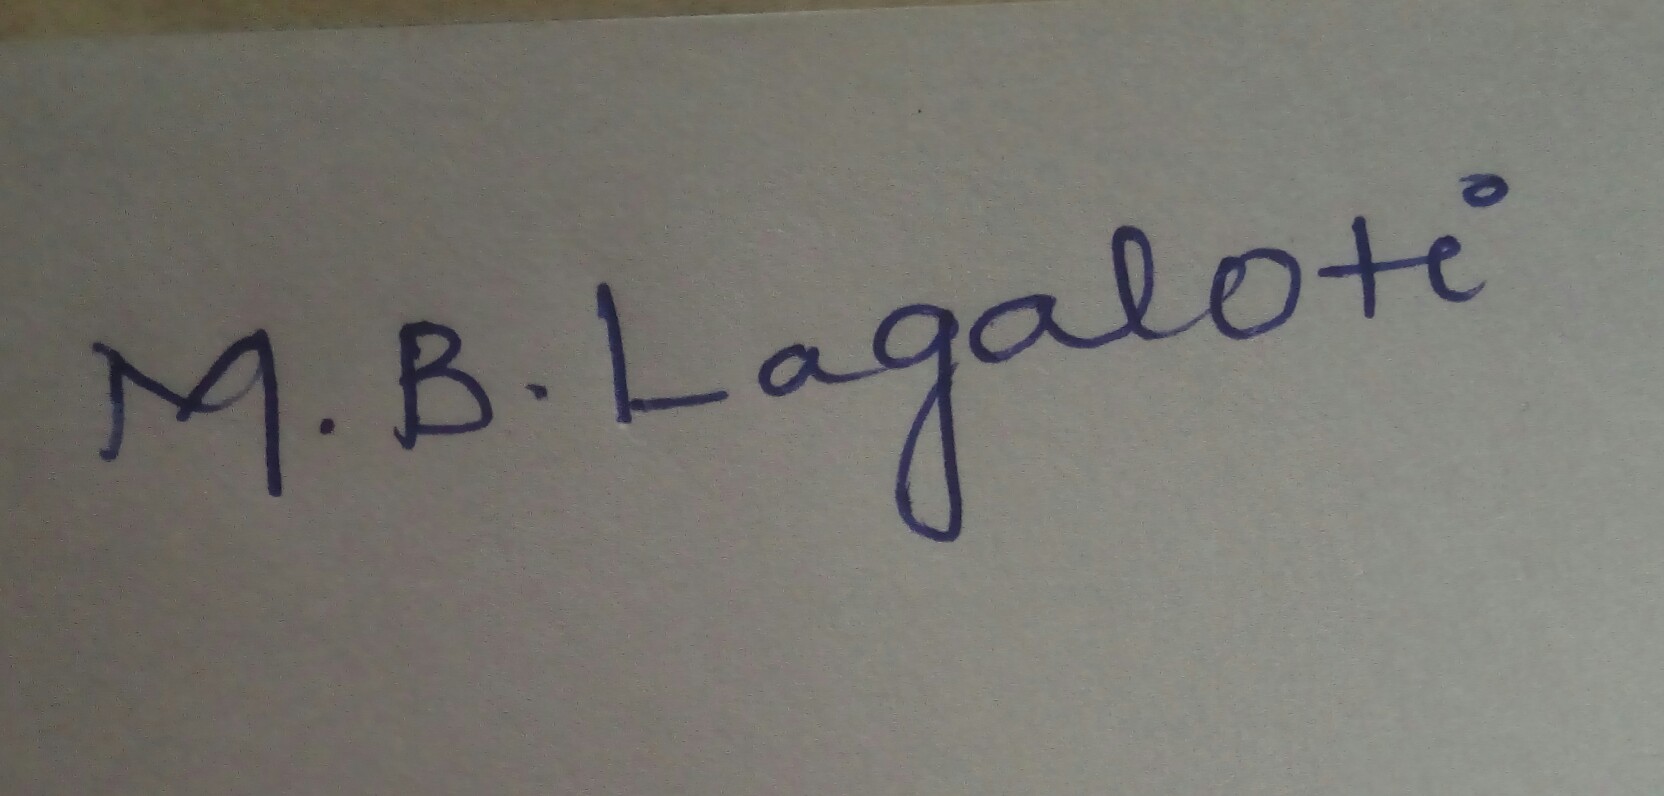 M. B. Lagaloti